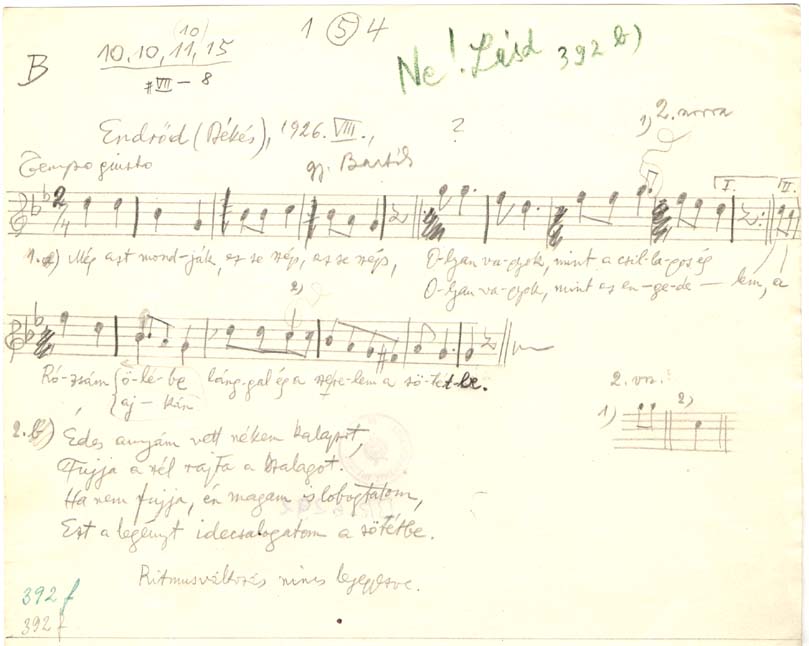 10
10, 10, 11, 15
1 5 4
B
# VII – 8
Ne! Lásd 392 b)
Endrőd (Békés), 1926. VIII., ?
1, 2. sorra
Tempo giusto
gy. Bartók
2/4
I. II.
1. a) Még azt mond-ják, ez se szép, az se szép, O-lyan va-gyok, mint a csil-la-gos ég
O-lyan va-gyok, mint az en-ge-de – lem, a
2)
Ró-zsám ö-lé-be láng-gal ég a szere-lem a sö-tét-be.
aj – kán
2. vsz.
1) 2)
2. b) Édes anyám vett nékem kalapot,
Fújja a szél rajta a szalagot.
Ha nem fújja, én magam is lobogtatom,
Ezt a legényt idecsalogatom a sötétbe.
Ritmusváltozás nincs lejegyezve.
392 f
392 f